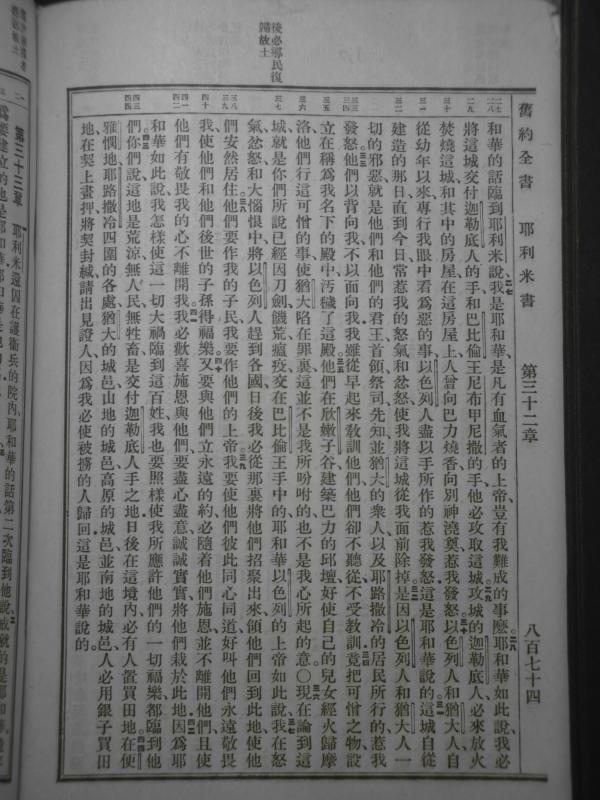 舊約全書 耶利米書 第三十二章 八百七十四
後必導民復
歸故土
和華的話臨到耶利米說、我是耶和華是凡有血氣者的上帝豈有我難成的事麼耶和華如此說我必
將這城交付迦勒底人的手和巴比倫王尼布甲尼撒的手他必攻取這城攻城的迦勒底人必來放火
焚燒這城和其中的房屋在這房屋上人曾向巴力燒香向別神澆奠惹我發怒以色列人和猶大人自
從幼年以來專行我眼中看爲惡的事以色列人盡以手所作的惹我發怒這是耶和華說的這城自從
建造的那日直到今日常惹我的怒氣和忿怒使我將這城從我面前除掉是因以色列人和猶大人一
切的邪惡就是他們和他們的君王首領祭司先知並猶大的衆人以及耶路撒冷的居民所行的惹我
發怒他們以背向我不以面向我我雖從早起來教訓他們他們卻不聽從不受教訓竟把可憎之物設
立在稱爲我名下的殿中汚穢了這殿他們在欣嫩子谷建築巴力的邱壇好使自己的兒女經火歸摩
洛他們行這可憎的事使猶大陷在罪裏這並不是我所吩咐的也不是我心所起的意○現在論到這
城就是你們所說已經因刀劍饑荒瘟疫交在巴比倫王手中的耶和華以色列的上帝如此說我在怒
氣忿怒和大惱恨中將以色列人趕到各國日後我必從那裏將他們招聚出來領他們回到此地使他
們安然居住他們要作我的子民我要作他們的上帝我要使他們彼此同心同道好叫他們永遠敬畏
我使他們和他們後世的子孫得福樂又要與他們立永遠的約必隨着他們施恩並不離開他們且使
他們有敬畏我的心不離開我我必歡喜施恩與他們要盡心盡意誠誠實實將他們栽於此地因爲耶
和華如此說我怎樣使這一切大禍臨到這百姓我也要照樣使我所應許他們的一切福樂都臨到他
們你們說這地是荒涼無人民無牲畜是交付迦勒底人手之地日後在這境內必有人置買田地在便
雅憫地耶路撒冷四圍的各處猶大的城邑山地的城邑高原的城邑並南地的城邑人必用銀子買田
地在契上畫押將契封緘請出見證人因爲我必使被擄的人歸回這是耶和華說的。
第三十三章 耶利米還囚在護衛兵的院內、耶和華的話第二次臨到他說成就的是耶和華